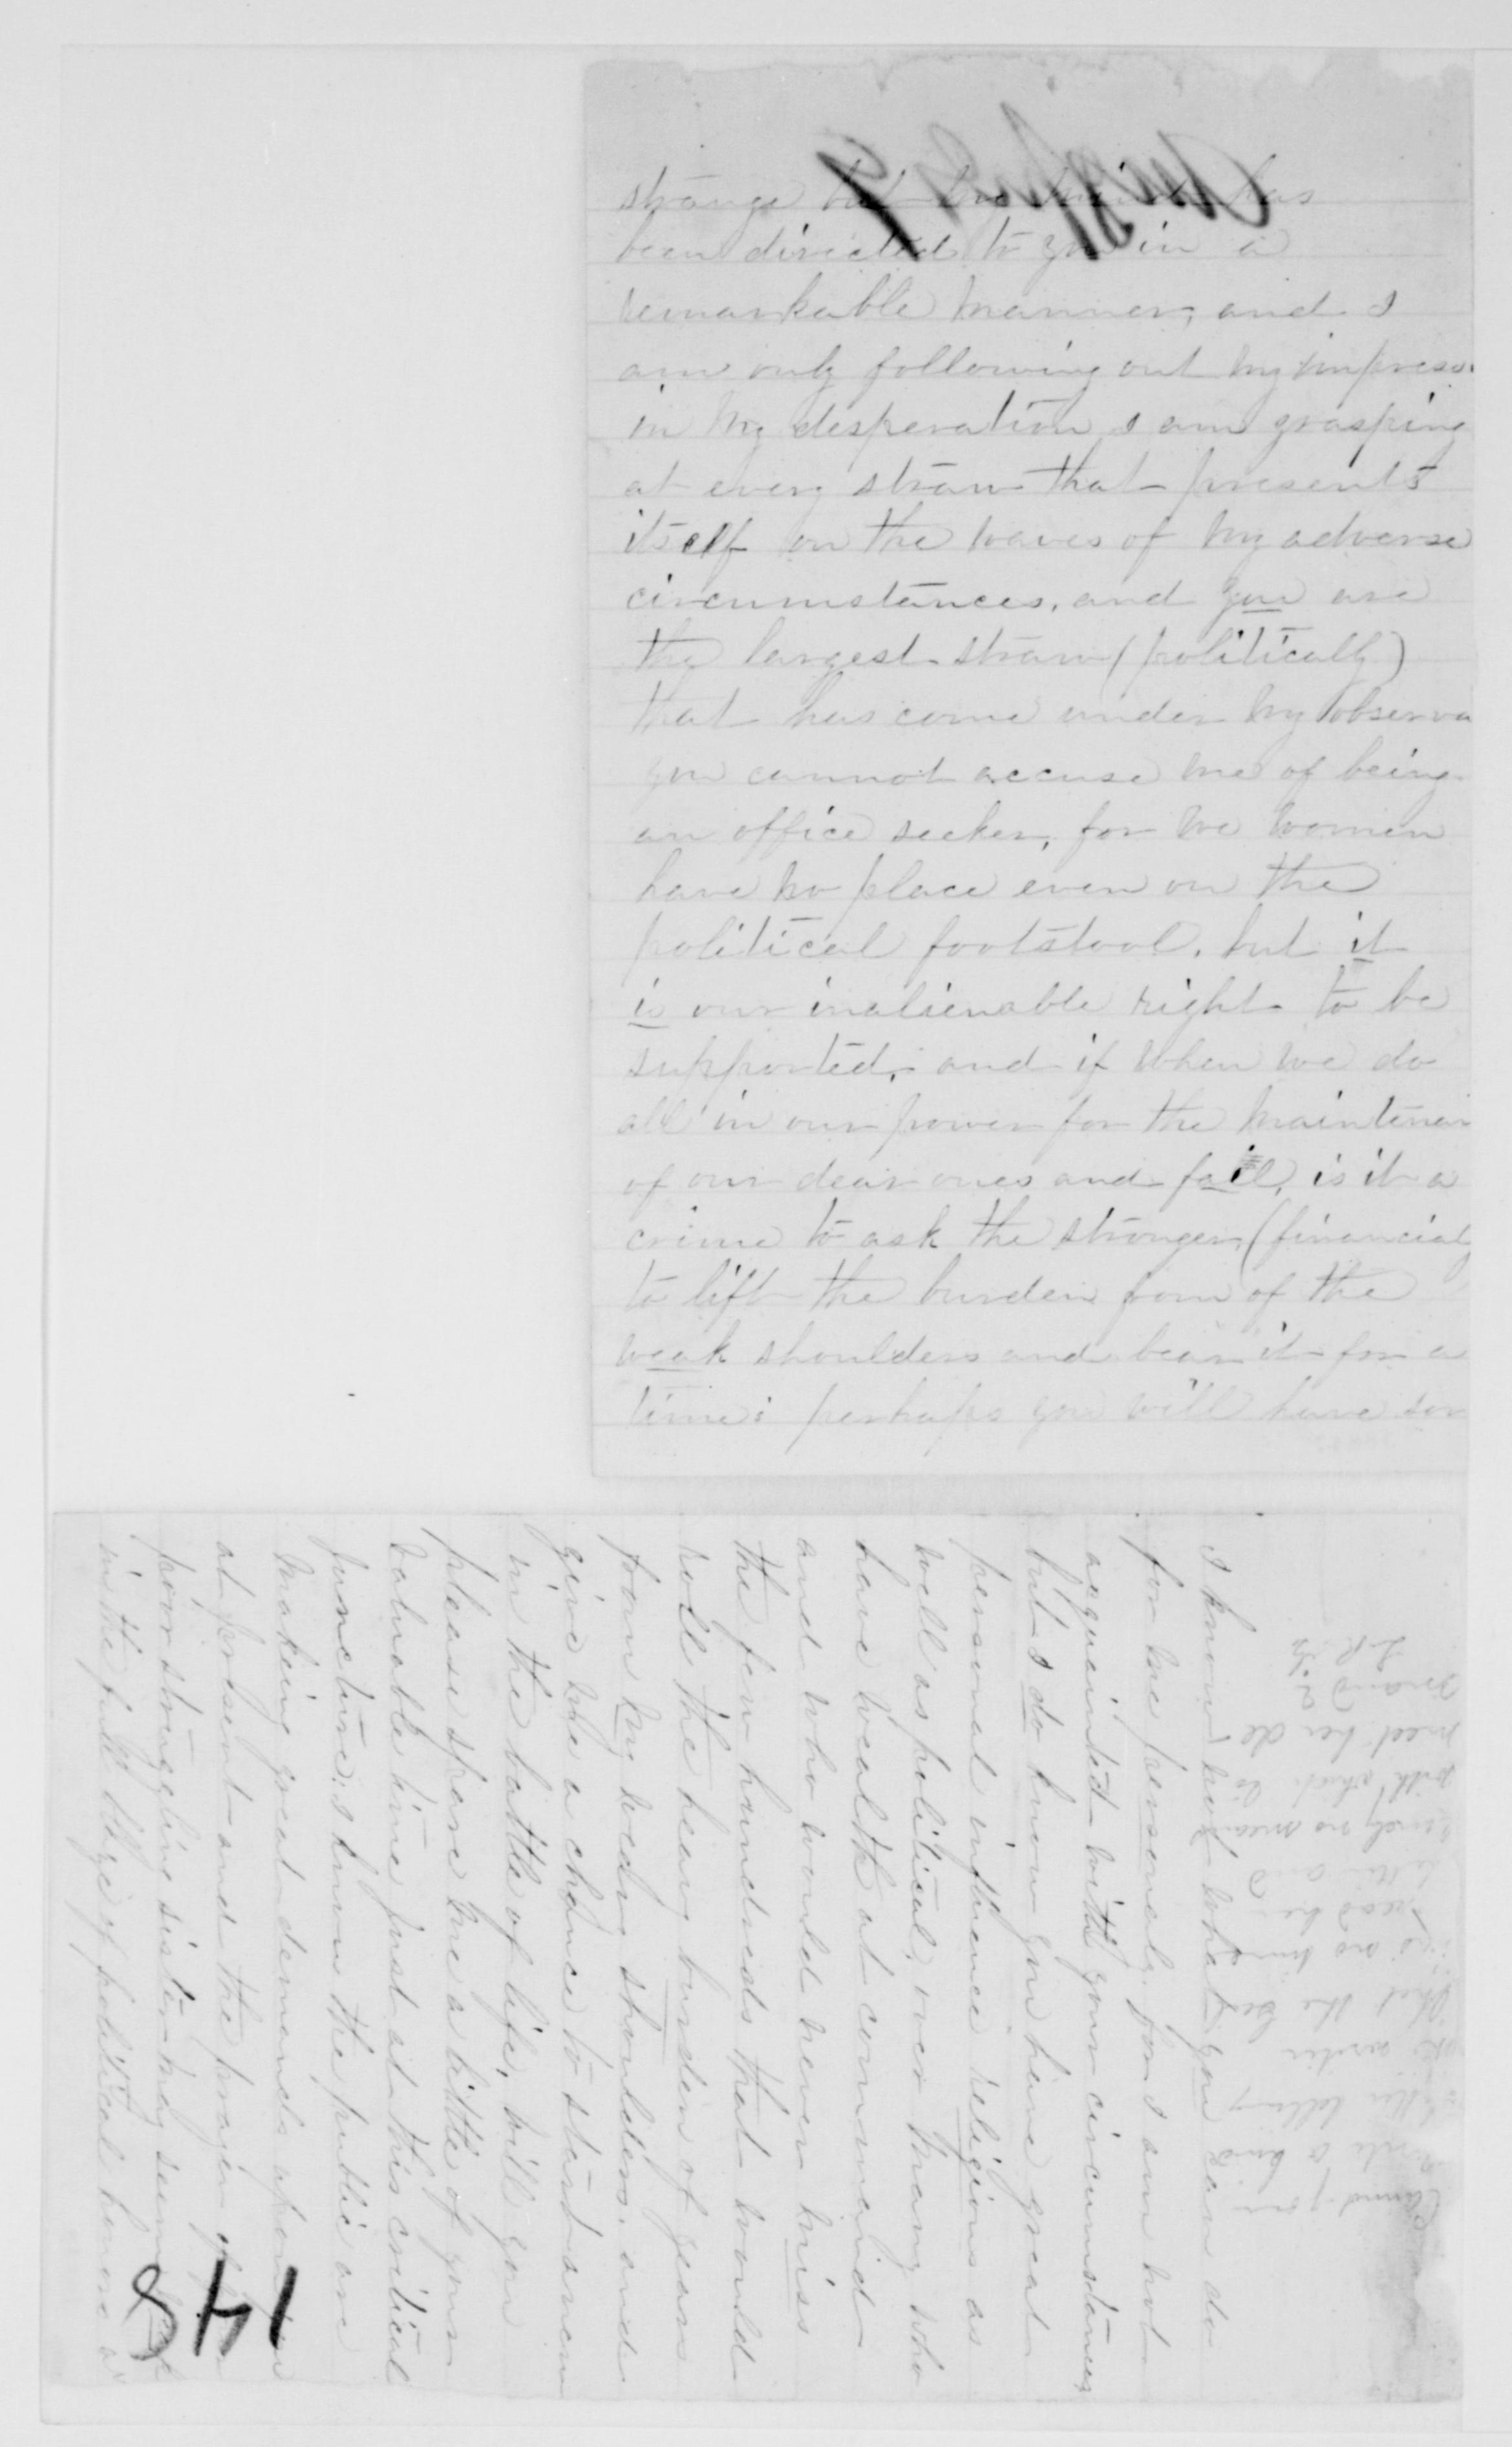 strange but my mind has
been directed to you in a
remarkable manner, and I
am only following out my impress
in my desperation I am grasping
at every straw that presents
itself on the waves of my adverse
circumstances, and you are
the largest straw (politically)
that has come under my observa
you cannot accuse me of being
an office seeker, for we women
have no place even on the
political footstool. but it
is our inalienable right to be
supported, and if when we do
all in our power for the maintenan
of our dear ones and fail, is it a
crime to ask the stronger (financialy
to lift the burden from of the
weak shoulders and bear it for a
time: perhaps you will have som
I know not what you can do
for me personaly, for I am not
acquainted with your circumstances
but I do know you have great
personal influence religious as
well as political, over many who
have wealth at command
and who would never miss
the few hundreds that would
roll the heavy burden of years
from my weary shoulders, and
give me a chance to start anew
in the battle of life, will you
please spare me a little of your
valuable time just at this critical
juncture: I know the public are
making great demands upon you
at present and the prayer of
poor struggling sister may seem
in the full blaze of political honors
write a kind
letter telling
that the Gen
has no time
read her
letter and
surely no means
with which to
meet her de
mand
L.R.
148